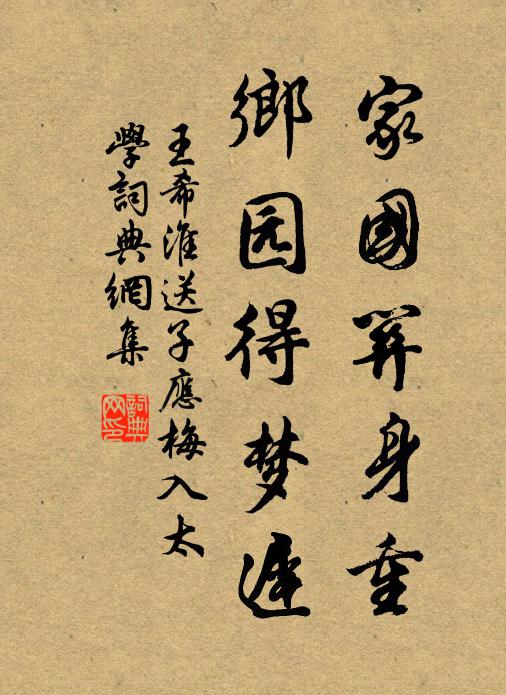 家國關身重
鄉园得梦遲
王希淮送子應梅入太
學詞典網集
詞典网印